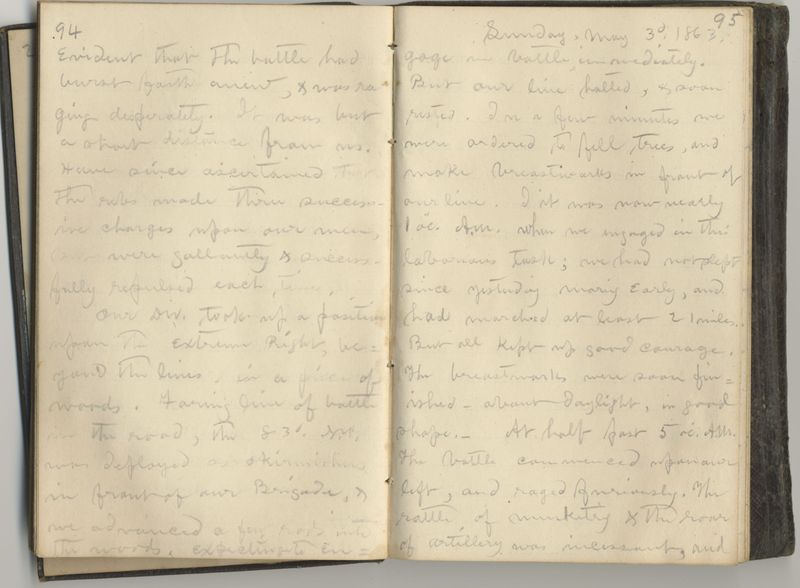 94
Evident that the battle had
burst forth anew, & was ra-
ging desperately. It was but
a short distance from us.
Have since ascertained that
the rebs made three success-
ive charges upon our men,
but were gallantly & success-
fully repulsed each time.
Our Div. took up a position
upon the Extreme Right, be=
yond the lines, in a piece of
woods. Forming line of battle
in the road, the 83d.
was deployed as skirmishers
in front of our Brigade, &
we advanced a few rods into
the woods, expecting to en=
95
Sunday, May 3d, 1863.
gage in battle, immediately.
But our line halted, & soon
rested. In a few minutes we
were ordered to fell trees, and
make breastworks in front of
our line. I it was now nearly
1 oc. A.M. when we engaged in this
laborious task; we had not slept
since yesterday morng early, and
had marched at least 21 miles.
But all kept up good courage.
The breastworks were soon fin=
ished - about daylight, in good
shape. - At half past 5 oc. A.M.
the battle commenced upon our
left, and raged furiously. The
rattle of musketry & the roar
of artillery was incessant, and